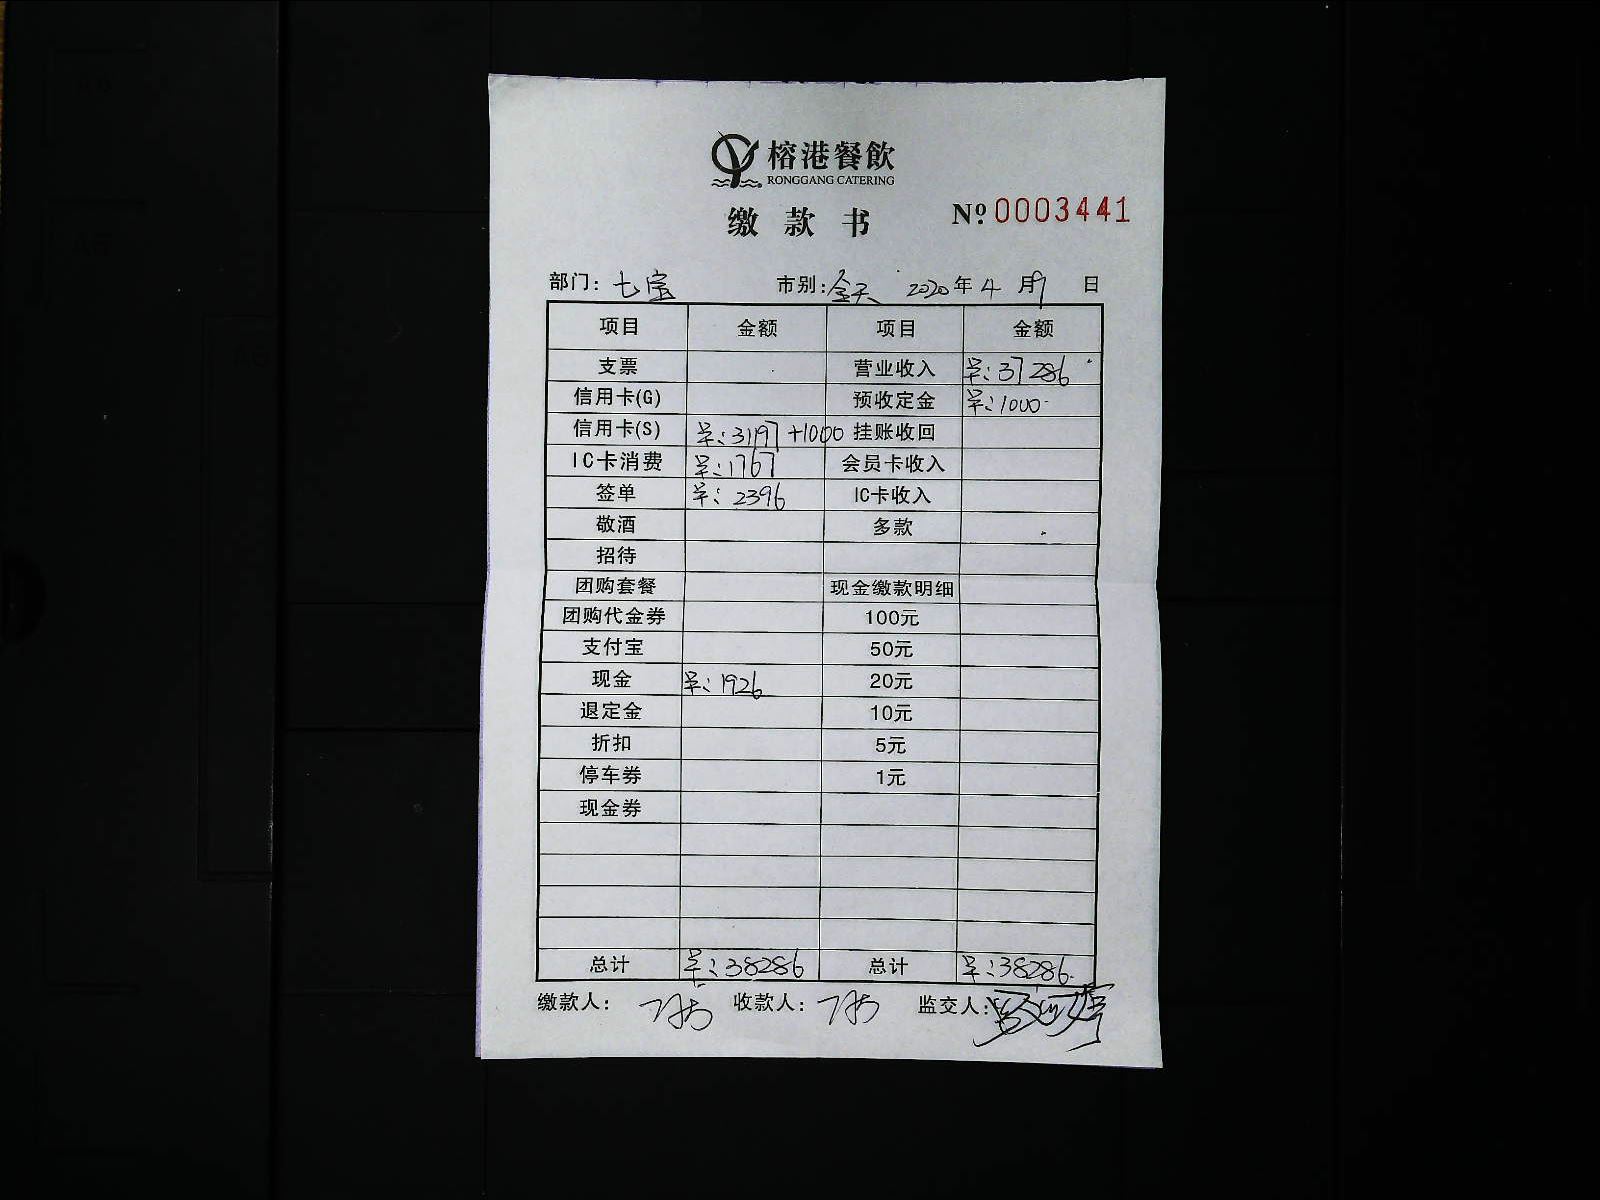 榕港餐飲
RONGGANG CATERING
缴款书 Nº 0003441
部门: 七宝 市别: 全天 2020年4月9日
项目 金额 项目 金额
支票 营业收入 早:37286
信用卡(G) 预收定金 早:1000
信用卡(S) 早:3119 +1000 挂账收回
IC卡消费 早:1767 会员卡收入
签单 早:2396 IC卡收入
敬酒 多款
招待
团购套餐 现金缴款明细
团购代金券 100元
支付宝 50元
现金 早:1926 20元
退定金 10元
折扣 5元
停车券 1元
现金券
总计 早:38286 总计 早:38286
缴款人: 收款人: 监交人: